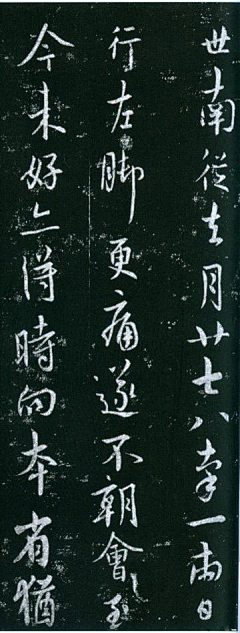 世南從去月廿七八率一兩日
行左脚更痛遂不朝會至
今未好亦得時向本省猶